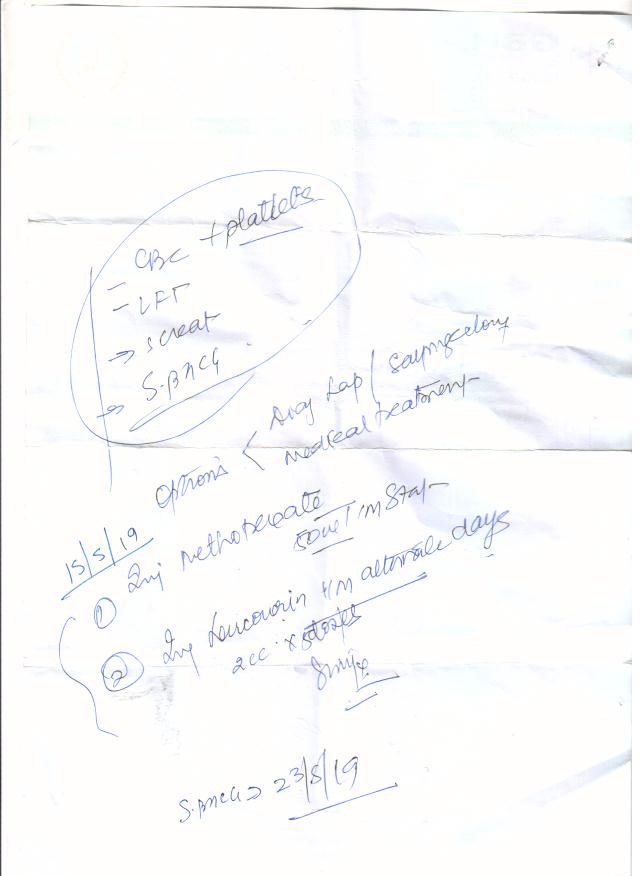 - CBC + platlets
- LFT
→ S creat
→ S-BHCG
options < Diag Lap / Salpingectomy
medical treatment
15/5/19
① Inj Methotrexate
I/M Stat
② Inj Leucovorin I/M alternate days
2cc x
S. BHCG → 23/5/19